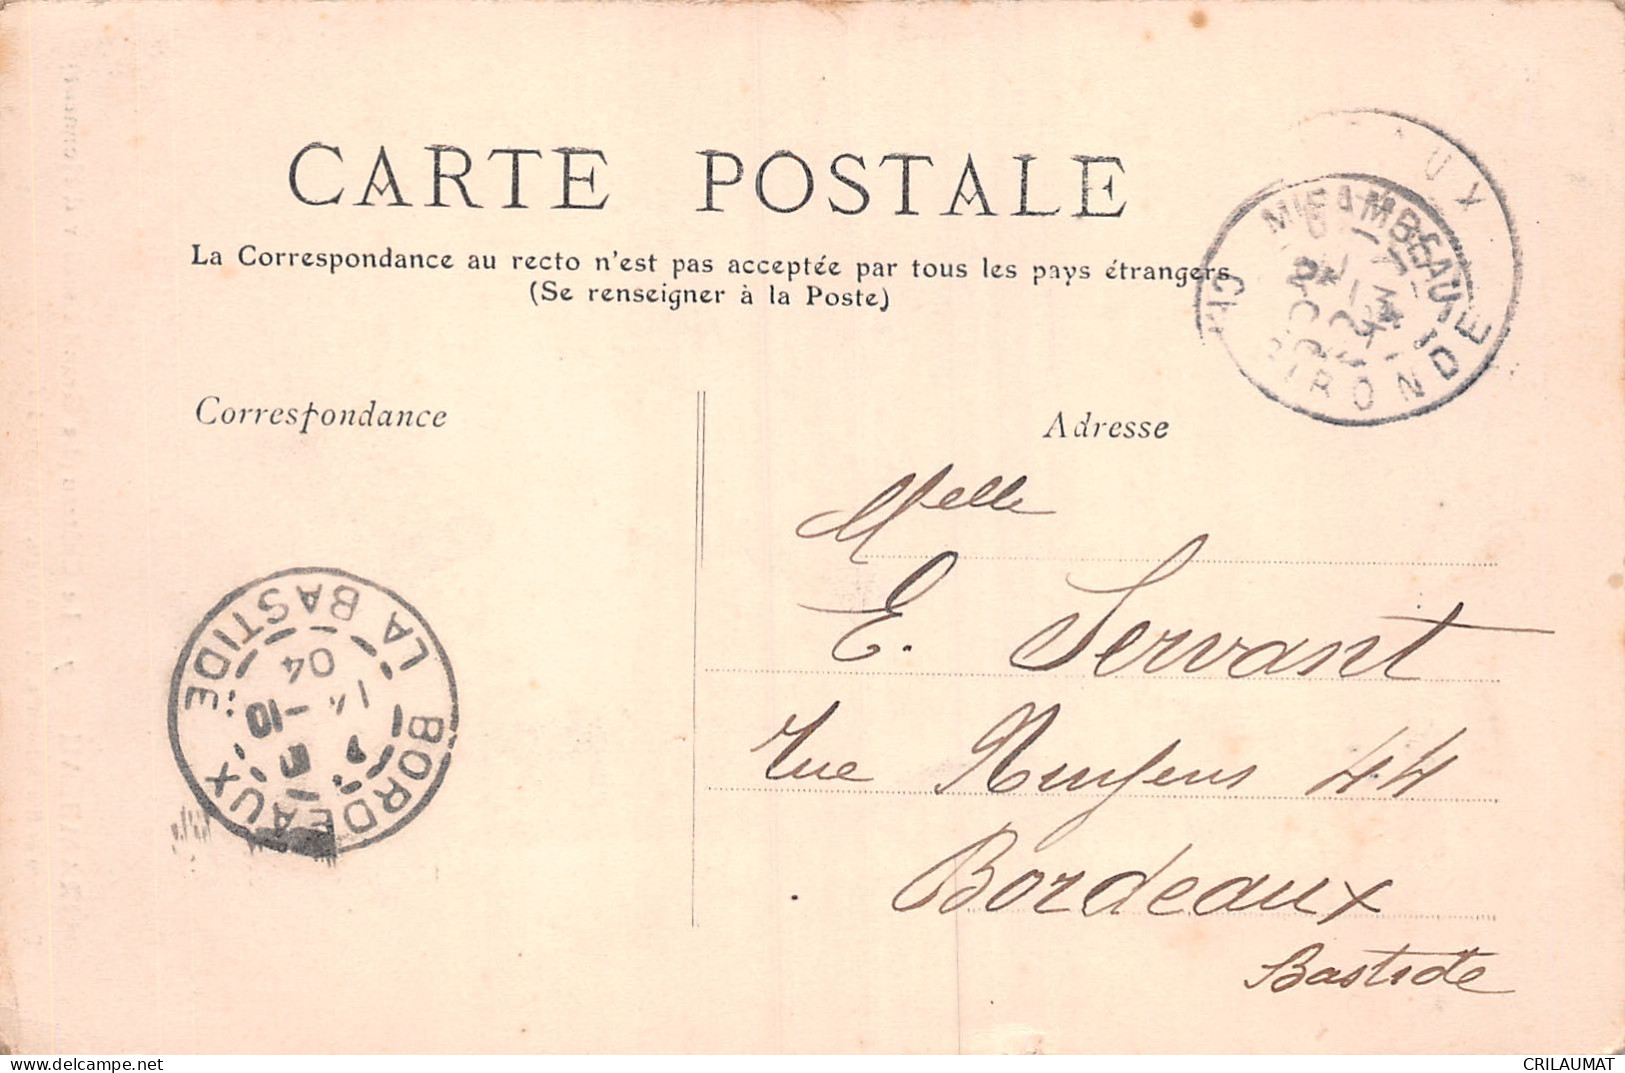 CARTE POSTALE
La Correspondance au recto n'est pas acceptée par tous les pays étrangers
(Se renseigner à la Poste)
Correspondance
Adresse
GIRONDE
Melle
E. Servant
rue 44
Bordeaux
Bastide
BORDEAUX LA BASTIDE
10
14
04
CRILAUMAT